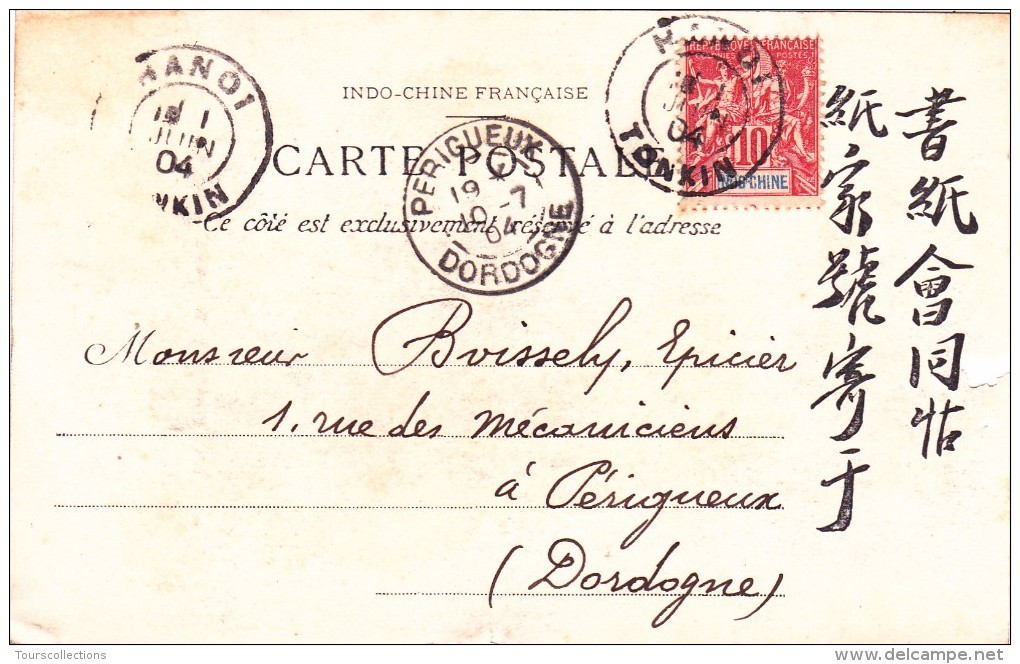 HANOI
1 JUIN
04
TONKIN
INDO-CHINE FRANÇAISE
CARTE POSTALE
Ce côté est exclusivement réservé à l'adresse
PERIGUEUX
19
10 -7
04
DORDOGNE
HANOI
JUIN
04
TONKIN
REPUBLIQUE FRANÇAISE
COLONIES POSTES
10
INDO-CHINE
書紙會同帖
紙家號寄于
Monsieur Boissely, Epicier
1. rue des Mécaniciens
à Périgueux
(Dordogne)
Tourscollections